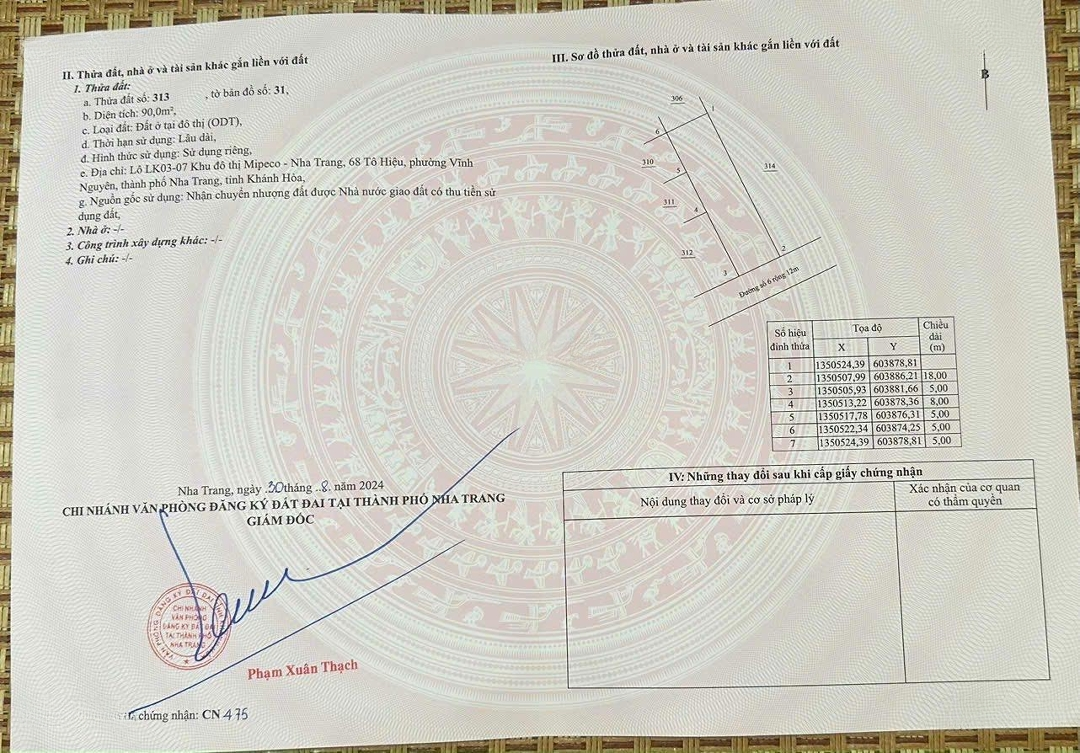 II. Thửa đất, nhà ở và tài sản khác gắn liền với đất
1. Thửa đất:
a. Thửa đất số: 313 , tờ bản đồ số: 31,
b. Diện tích: 90,0m²,
c. Loại đất: Đất ở tại đô thị (ODT),
d. Thời hạn sử dụng: Lâu dài,
đ. Hình thức sử dụng: Sử dụng riêng,
e. Địa chỉ: Lô LK03-07 Khu đô thị Mipeco - Nha Trang, 68 Tô Hiệu, phường Vĩnh
Nguyên, thành phố Nha Trang, tỉnh Khánh Hòa,
g. Nguồn gốc sử dụng: Nhận chuyển nhượng đất được Nhà nước giao đất có thu tiền sử
dụng đất,
2. Nhà ở: -/-
3. Công trình xây dựng khác: -/-
4. Ghi chú: -/-
Nha Trang, ngày 30 tháng 8 năm 2024
CHI NHÁNH VĂN PHÒNG ĐĂNG KÝ ĐẤT ĐAI TẠI THÀNH PHỐ NHA TRANG
GIÁM ĐỐC
CHI NHÁNH
VĂN PHÒNG
ĐĂNG KÝ ĐẤT ĐAI
TẠI THÀNH PHỐ
NHA TRANG
Phạm Xuân Thạch
chứng nhận: CN 475
III. Sơ đồ thửa đất, nhà ở và tài sản khác gắn liền với đất
B
306
1
6
310
314
5
311
4
312
2
3
Đường số 6 rộng 12m
Số hiệu đỉnh thửa Tọa độ Chiều dài (m)
X Y
1 1350524,39 603878,81
2 1350507,99 603886,21 18,00
3 1350505,93 603881,66 5,00
4 1350513,22 603878,36 8,00
5 1350517,78 603876,31 5,00
6 1350522,34 603874,25 5,00
7 1350524,39 603878,81 5,00
IV: Những thay đổi sau khi cấp giấy chứng nhận
Nội dung thay đổi và cơ sở pháp lý Xác nhận của cơ quan có thẩm quyền